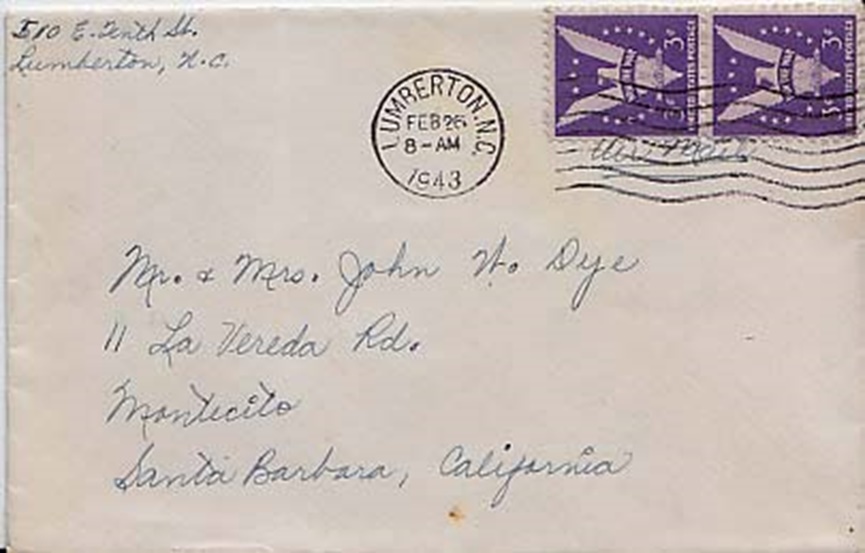 510 E. Tenth St.
Lumberton, N.C.
LUMBERTON, N.C.
FEB 26
8-AM
1943
3¢
UNITED STATES POSTAGE
3¢
UNITED STATES POSTAGE
Air Mail
Mr. & Mrs. John W. Dye
11 La Vereda Rd.
Montecito
Santa Barbara, California